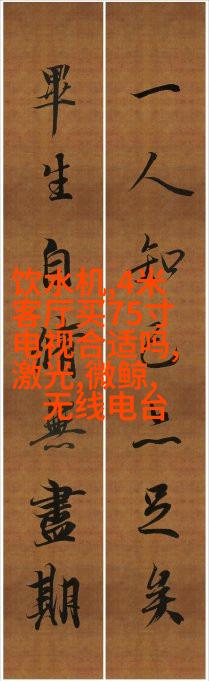 一人知己亦足矣
畢生自脩無盡期
饮水机,4米
客厅买75寸
电视合适吗,
激光,微鲸,
无线电台